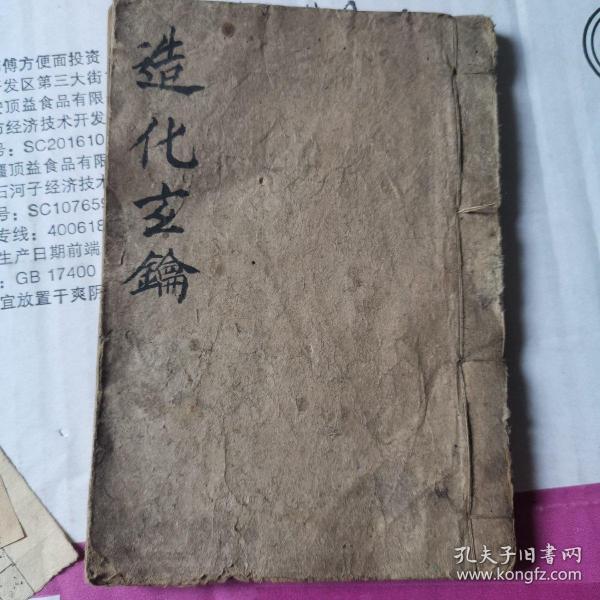 造化玄鑰
傅方便面投资
发区第三大街
顶益食品有限
经济技术开发
号：SC201610
疆顶益食品有限
石河子经济技术
号：SC107659
专线：400618
生产日期前端
：GB 17400
宜放置干爽阴
孔夫子旧书网
www.kongfz.com